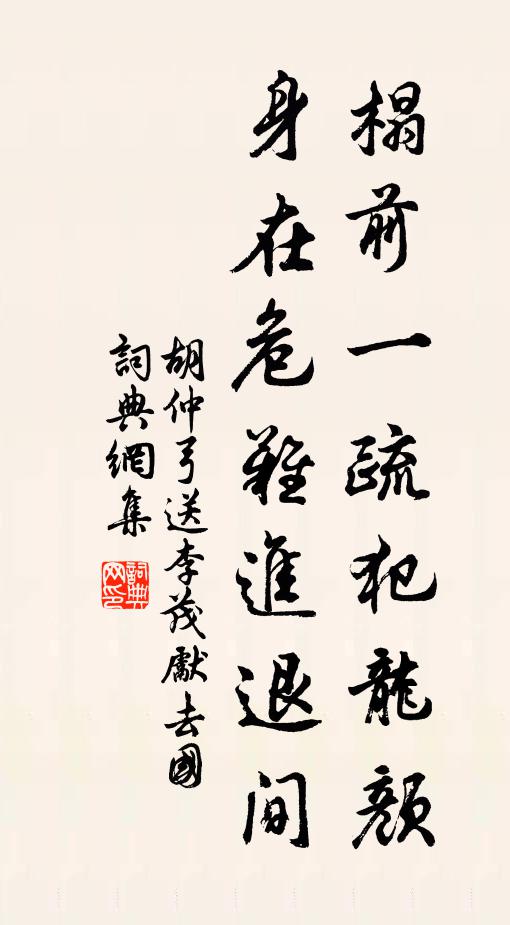 榻前一疏犯龍顏
身在危難進退间
胡仲弓送李茂獻去國
詞典網集
詞典網印